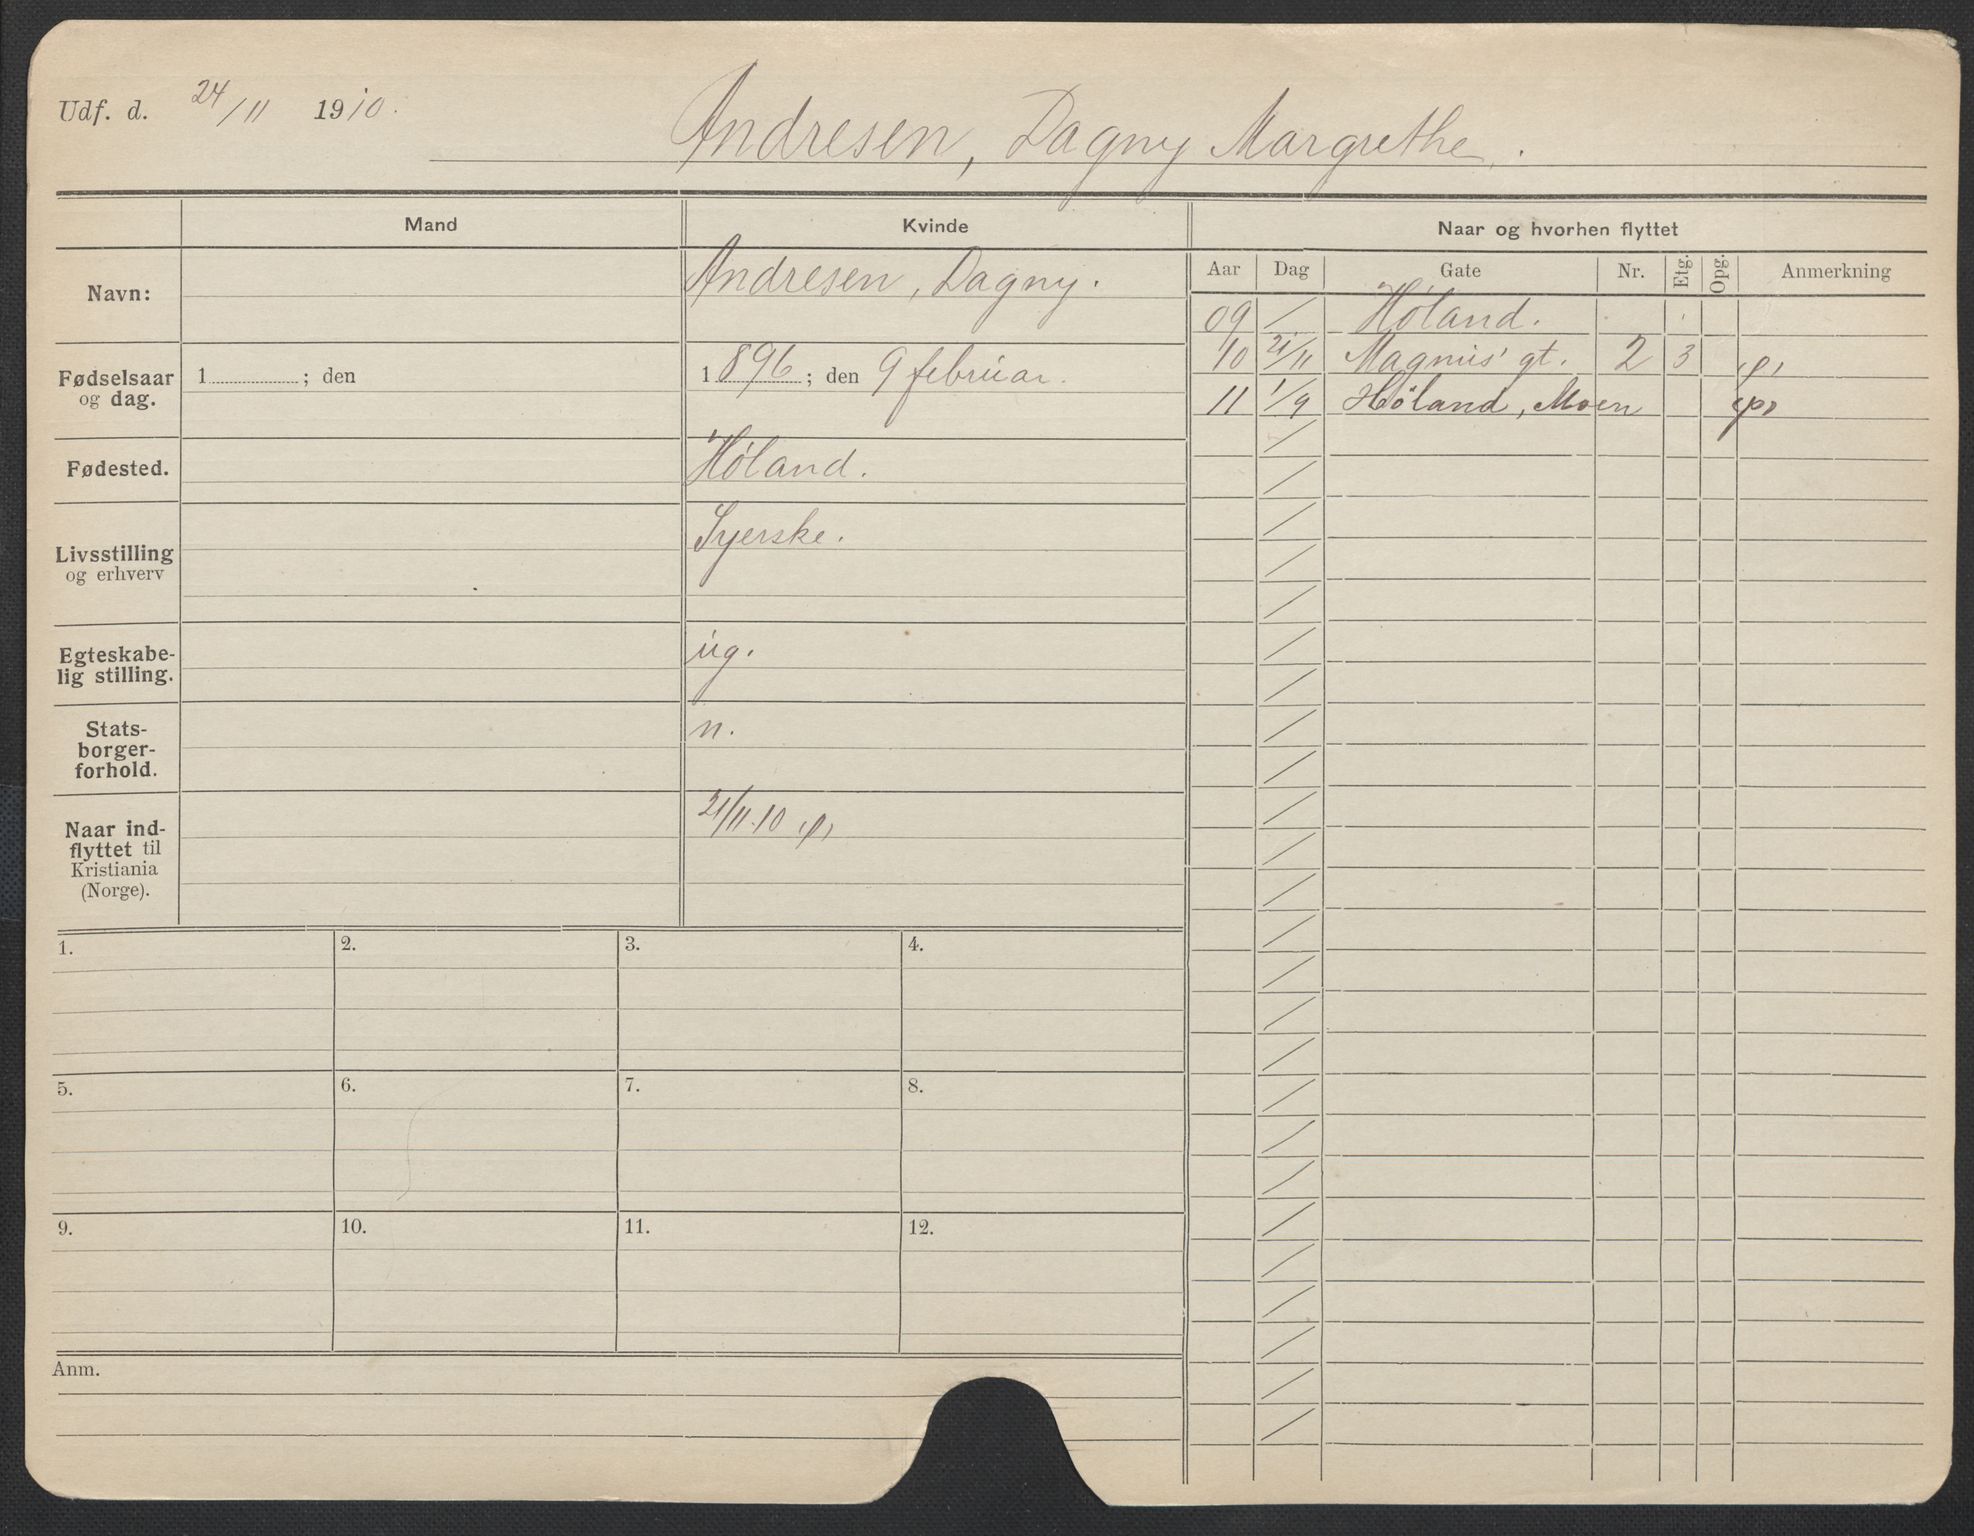 Udf. d. 24/11 1910.
Andresen, Dagny Margrethe.
Mand
Kvinde
Naar og hvorhen flyttet
Navn:
Andresen, Dagny.
Fødselsaar og dag.
1 ; den
1896 ; den 9 februar.
Fødested.
Høland.
Livsstilling og erhverv
Syerske.
Egteskabe-
lig stilling.
ug.
Stats-
borger-
forhold.
n.
Naar ind-
flyttet til
Kristiania
(Norge).
21/11.10
1.
2.
3.
4.
5.
6.
7.
8.
9.
10.
11.
12.
Anm.
Aar Dag Gate Nr. Etg. Opg. Anmerkning
09 / Høland.
10 21/11 Magnus' gt. 2 3
11 1/9 Høland, Moen